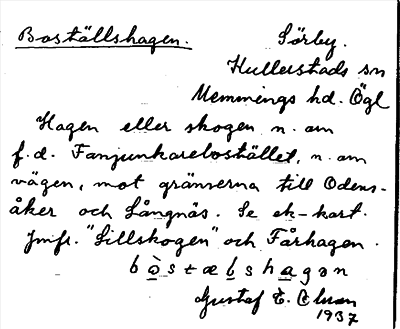 Boställshagen.
Sörby.
Hullerstads sn
Memmings hd. Ögl
Hagen eller skogen n. om
f.d. Fanjunkarebostället, n. om
vägen, mot gränserna till Odens-
åker och Långnäs. Se ek-kart.
Jmfr. "Lillskogen" och Fårhagen.
bòstæḷshagən
Gustaf E. Olsson
1937